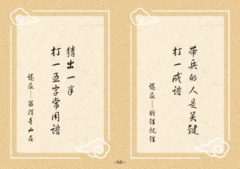 猜出一半
打一五字常用语
谜底——留得青山在
带兵的人是关键
打一成语
谜底——
-66-